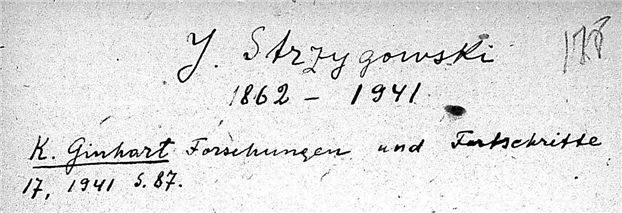 J. Strzygowski
178
1862 - 1941
K. Ginhart Forschungen und Fortschritte
17, 1941 S. 87.